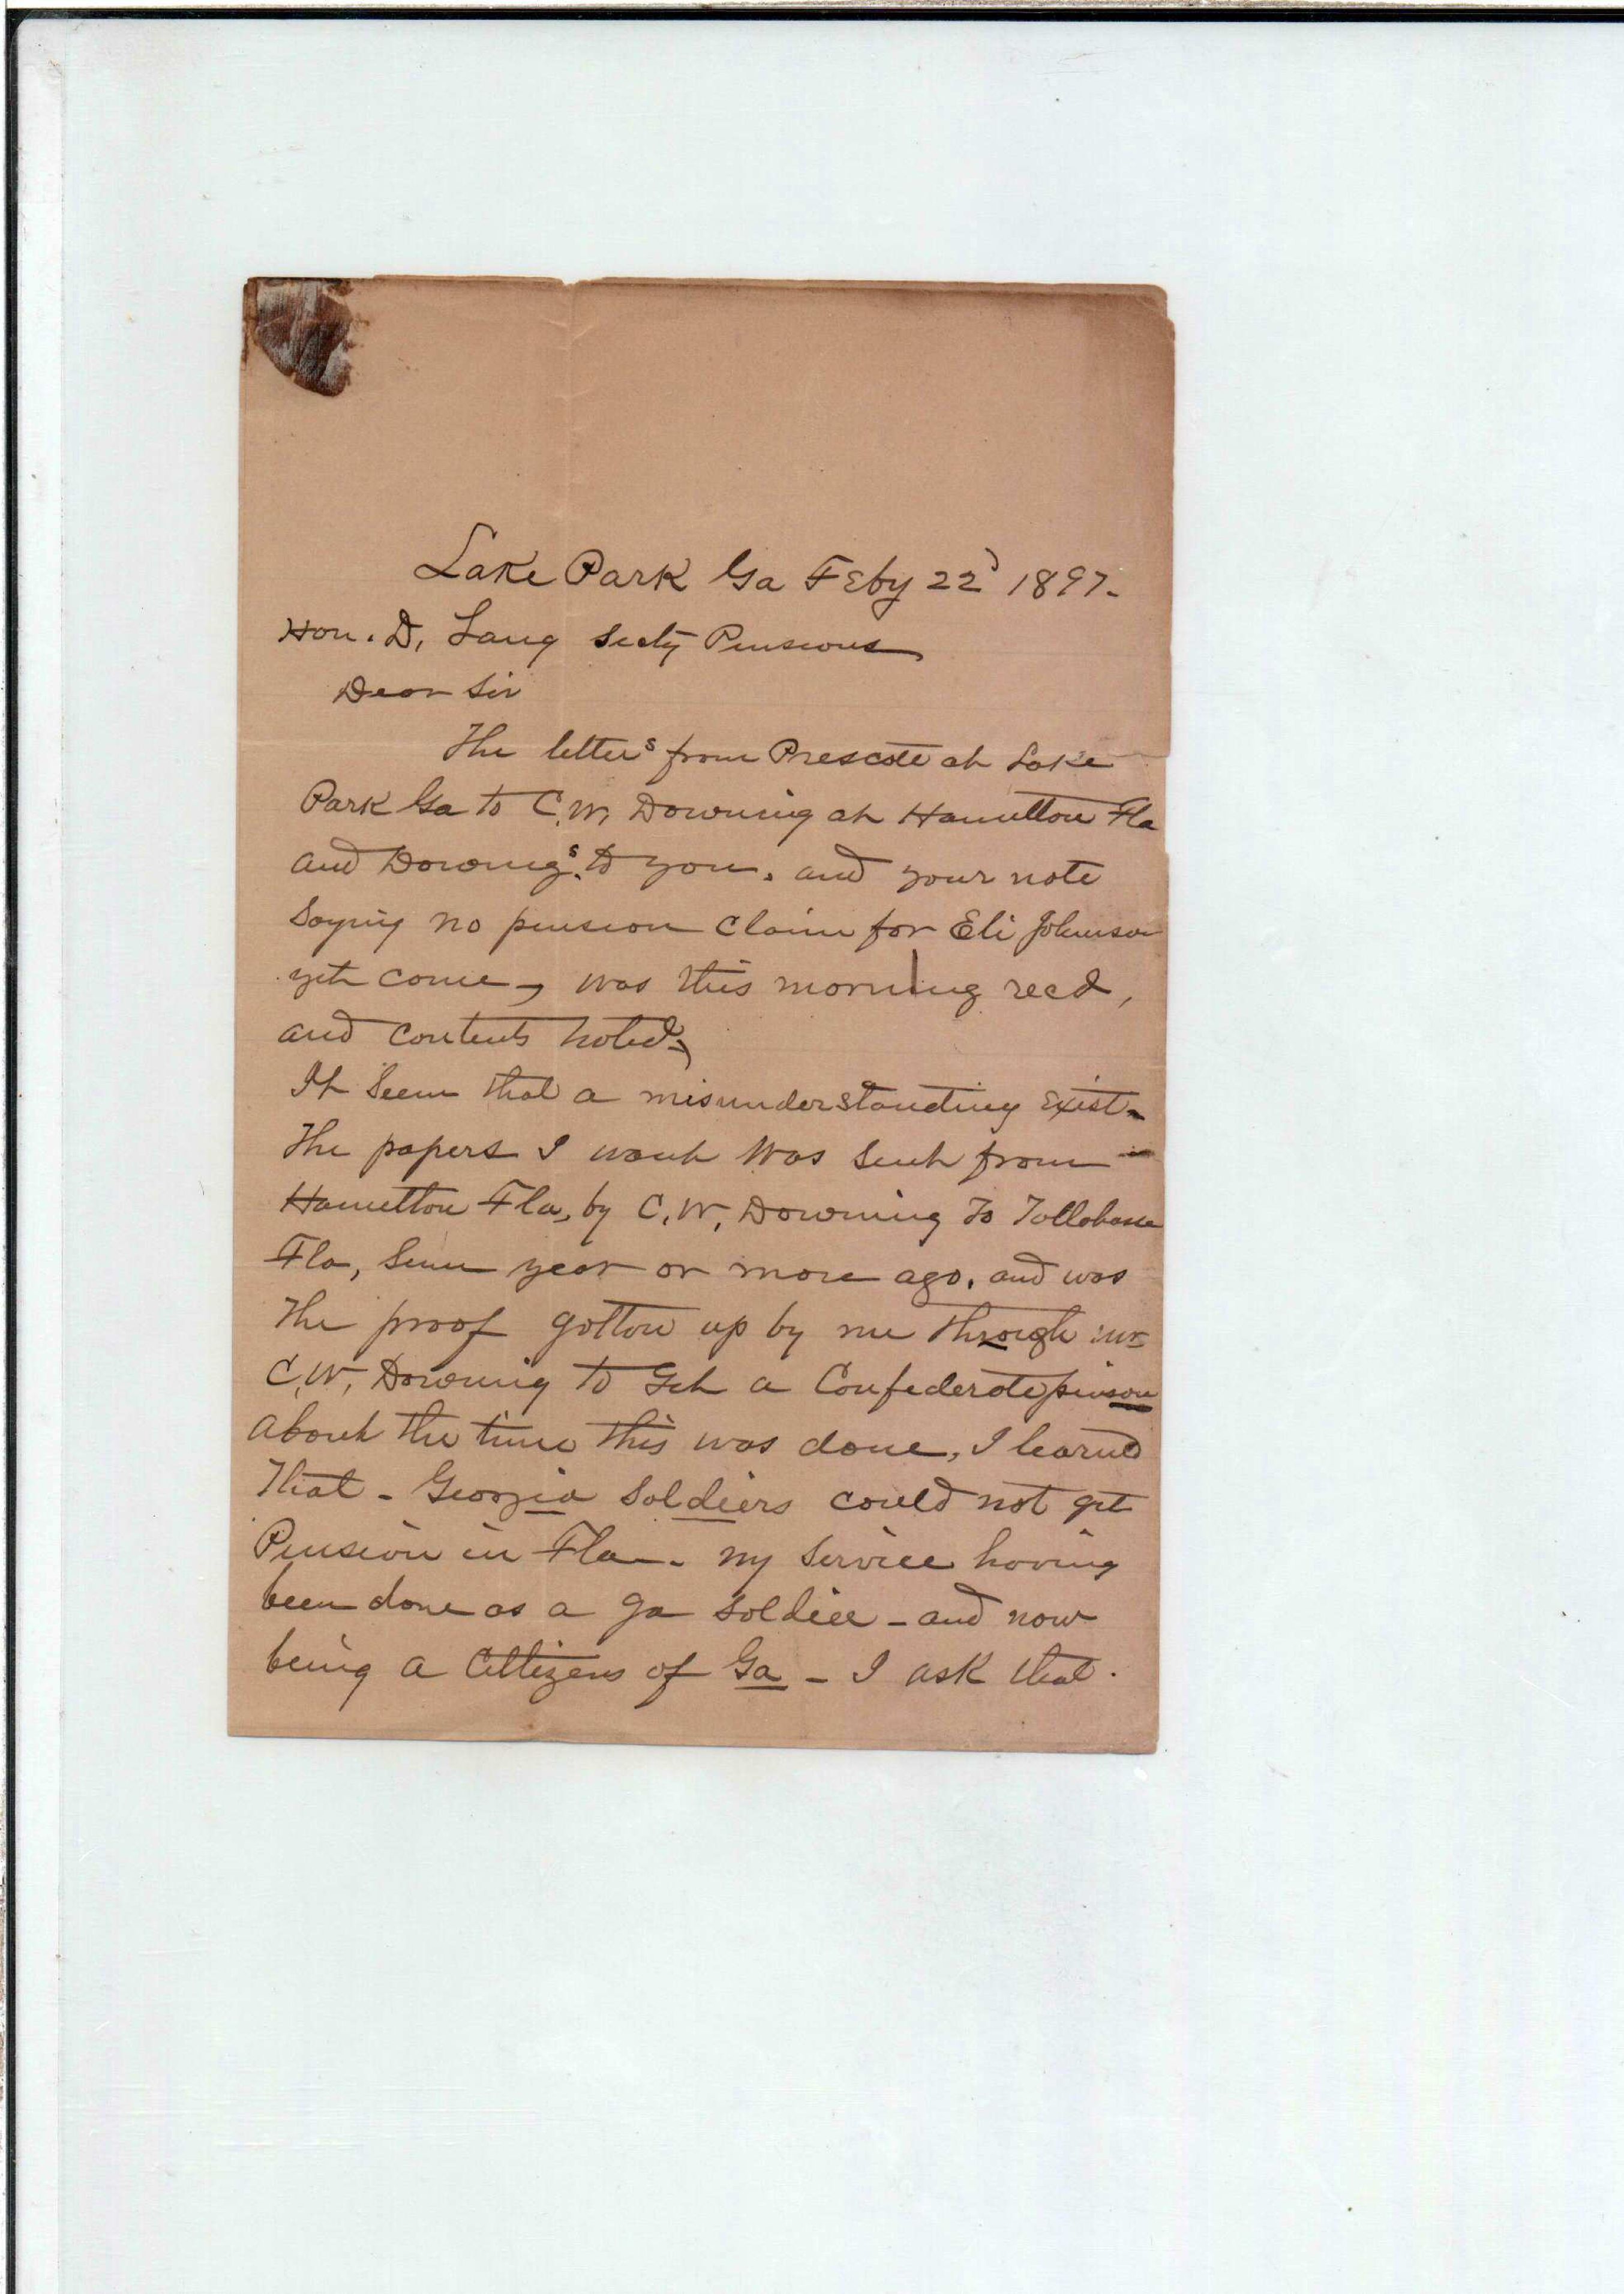 Lake Park Ga Feby 22d 1897.
Hon. D. Lang Secty Pensions
Dear Sir
The letters from Prescote at Lake
Park Ga to C.W. Downing at Hamelton Fla
and Downigs. to you. and your note
Saying no pension Claim for Eli Johnson
yet come, was this morning recd,
and contents noted,
It Seem that a misunderstanding exist-
The papers I want Was Sent from
Hamelton Fla, by C, W, Downing To Tallahasse
Fla, Some year or more ago. and was
The proof gotton up by me through mr
C, W, Downing to Get a Confederate pinson
about the time this was done, I learned
That - Georgia Soldiers could not get
Pension in Fla - my Service having
been done as a Ga Soldier - and now
being a Cittizens of Ga - I ask that